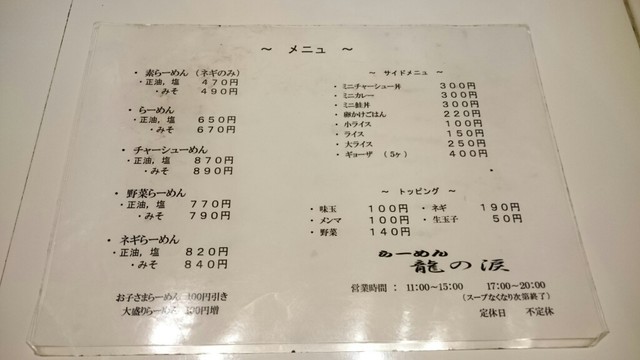 ～ メニュ ～
・ 素らーめん （ネギのみ）
・正油，塩 ４７０円
・みそ ４９０円
・らーめん
・正油，塩 ６５０円
・みそ ６７０円
・チャーシューめん
・正油，塩 ８７０円
・みそ ８９０円
・野菜らーめん
・正油，塩 ７７０円
・みそ ７９０円
・ネギらーめん
・正油，塩 ８２０円
・みそ ８４０円
お子さまらーめん 100円引き
大盛りらーめん 円増
～ サイドメニュ ～
・ ミニチャーシュー丼 ３００円
・ ミニカレー ３００円
・ ミニ鮭丼 ３００円
・ 卵かけごはん ２２０円
・ 小ライス １００円
・ ライス １５０円
・ 大ライス ２５０円
・ ギョーザ （５ヶ） ４００円
～ トッピング ～
・ 味玉 １００円 ・ ネギ １９０円
・ メンマ １００円 ・ 生玉子 ５０円
・ 野菜 １４０円
らーめん
龍の涙
営業時間 ： 11:00～15:00 17:00～20:00
(スープなくなり次第終了)
定休日 不定休